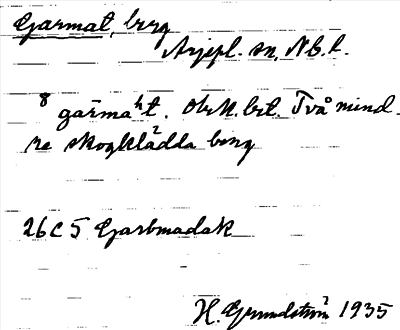 Garmat, berg
Arjepl. sn, Nb. l.
8 garmaʰt. Obek. bet. Två mind-
re skogklädda berg
26C5 Garbmadak
H. Grundström 1935